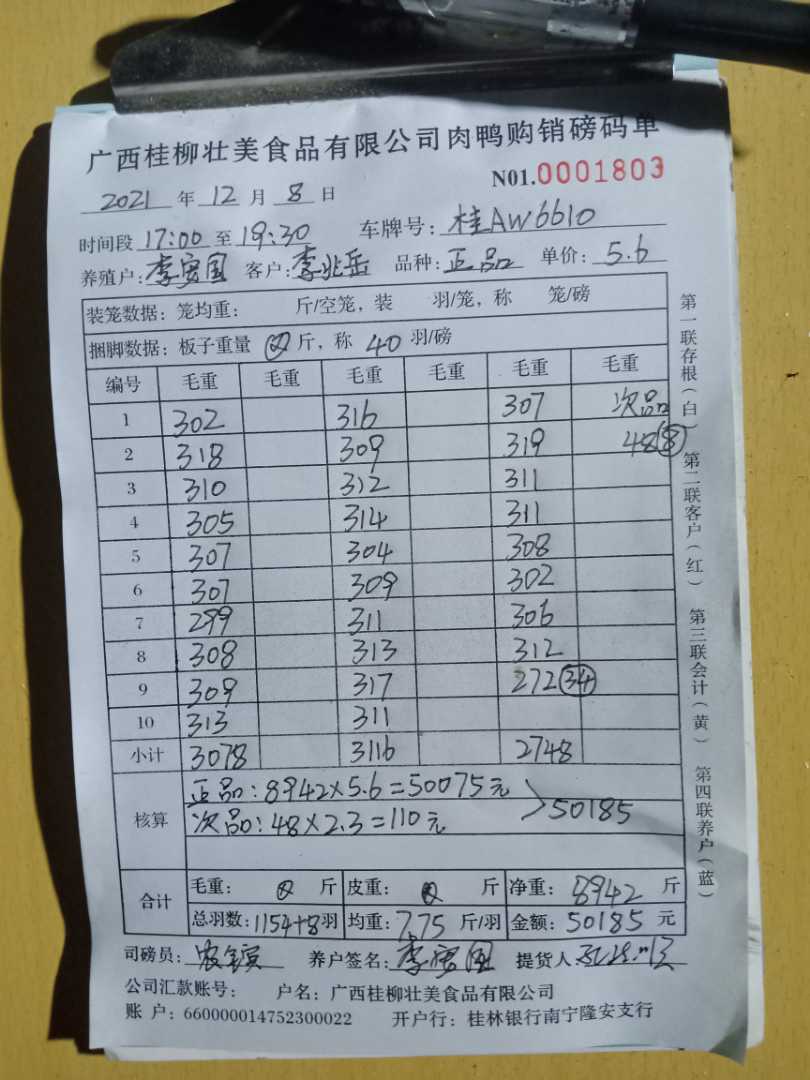 广西桂柳壮美食品有限公司肉鸭购销磅码单
N01.0001803
2021 年 12 月 8 日
时间段 17:00 至 19:30 车牌号: 桂AW6610
养殖户: 李安国 客户: 李兆岳 品种: 正品 单价: 5.6
装笼数据: 笼均重: 斤/空笼, 装 羽/笼, 称 笼/磅
捆脚数据: 板子重量 斤, 称 40 羽/磅
编号 毛重 毛重 毛重 毛重 毛重 毛重
1 302 316 307 次品
2 318 309 319 48(8)
3 310 312 311
4 305 314 311
5 307 304 308
6 307 309 302
7 299 311 306
8 308 313 312
9 309 317 272(34)
10 313 311
小计 3078 3116 2748
核算 正品:8942×5.6=50075元
次品:48×2.3=110元 >50185
合计 毛重: 斤 皮重: 斤 净重: 8942 斤
总羽数: 1154+8 羽 均重: 7.75 斤/羽 金额: 50185 元
司磅员: 养户签名: 李安国 提货人
公司汇款账号: 户名: 广西桂柳壮美食品有限公司
账户: 660000014752300022 开户行: 桂林银行南宁隆安支行
第一联存根(白) 第二联客户(红) 第三联会计(黄) 第四联养户(蓝)